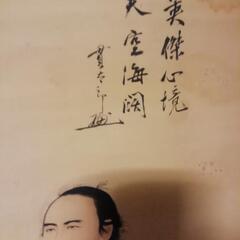 英傑心境
天空海闊